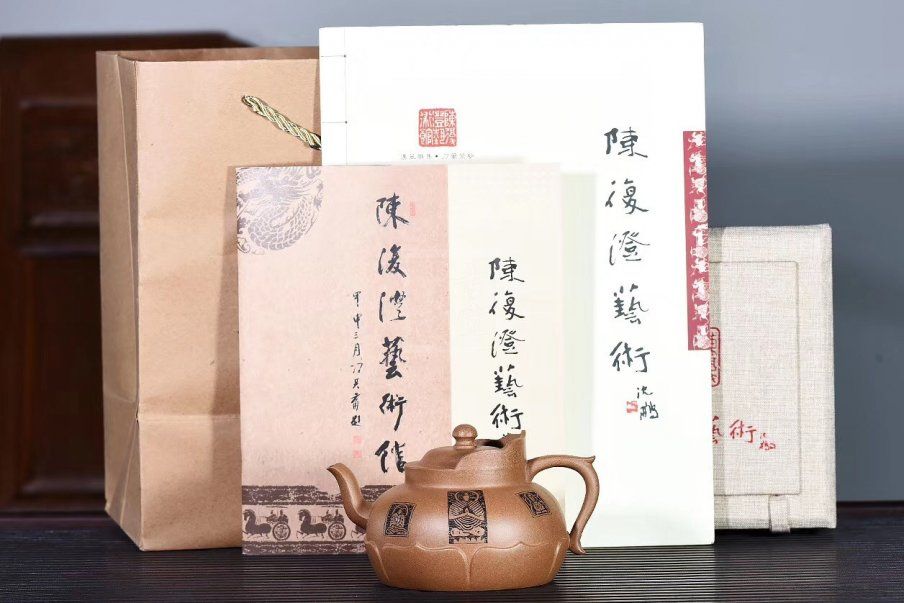 陳復澄藝術館
甲申三月馮其庸題
陳復澄藝術
陳復澄藝術
沈鵬
藝術
沈鵬